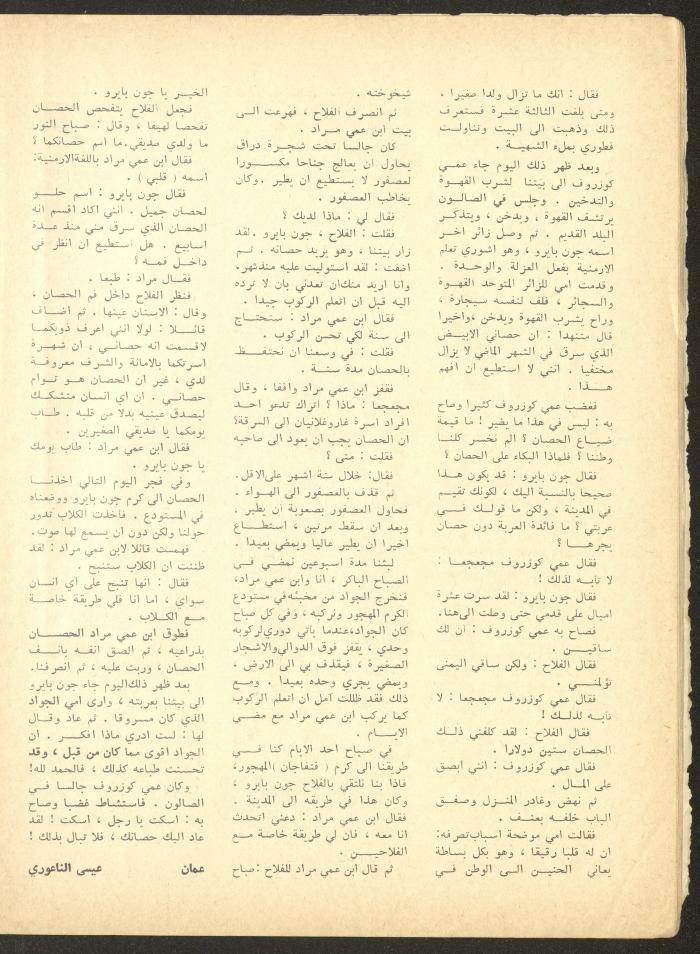 فقال : انك ما تزال ولدا صغيرا ،
ومتى بلغت الثالثة عشرة فستعرف
ذلك وذهبت الى البيت وتناولت
فطوري بملء الشهية .
وبعد ظهر ذلك اليوم جاء عمي
كوزروف الى بيتنا لشرب القهوة
والتدخين . وجلس في الصالون
يرتشف القهوة ، ويدخن ، ويتذكر
البلد القديم . ثم وصل زائر اخر
اسمه جون بايرو ، وهو اشوري تعلم
الارمنية بفعل العزلة والوحدة .
وقدمت امي للزائر المتوحد القهوة
والسجائر ، فلف لنفسه سيجارة ،
وراح يشرب القهوة ويدخن ،واخيرا
قال متنهدا : ان حصاني الابيض
الذي سرق في الشهر الماضي لا يزال
مختفيا . انني لا استطيع ان افهم
هذا .
فغضب عمي كوزروف كثيرا وصاح
به : ليس في هذا ما يضير ! ما قيمة
ضياع الحصان ؟ الم نخسر كلنا
وطننا ؟ فلماذا البكاء على الحصان ؟
فقال جون بايرو : قد يكون هذا
صحيحا بالنسبة اليك ، لكونك تقيم
في المدينة ، ولكن ما قولك في
عربتي ؟ ما فائدة العربة دون حصان
يجرها ؟
فقال عمي كوزروف مجعجعا :
لا تأبه لذلك !
فقال جون بايرو : لقد سرت عشرة
اميال على قدمي حتى وصلت الى هنا.
فصاح به عمي كوزروف : ان لك
ساقين .
فقال الفلاح : ولكن ساقي اليمنى
تؤلمني .
فقال عمي كوزروف مجعجعا : لا
تأبه لذلك !
فقال الفلاح : لقد كلفني ذلك
الحصان ستين دولارا .
فقال عمي كوزروف : انني ابصق
على المال .
ثم نهض وغادر المنزل وصفق
الباب خلفه بعنف .
فقالت امي موضحة اسباب تصرفه:
ان له قلبا رقيقا ، وهو بكل بساطة
يعاني الحنين الى الوطن في
شيخوخته .
ثم انصرف الفلاح ، فهرعت الى
بيت ابن عمي مراد .
كان جالسا تحت شجرة دراق
يحاول ان يعالج جناحا مكسورا
لعصفور لا يستطيع ان يطير .وكان
يخاطب العصفور .
فقال لي : ماذا لديك ؟
فقلت : الفلاح ، جون بايرو .لقد
زار بيتنا ، وهو يريد حصانه . ثم
اضفت : لقد استوليت عليه منذ شهر،
وانا اريد منك ان تعدني بان لا ترده
اليه قبل ان اتعلم الركوب جيدا .
فقال ابن عمي مراد : ستحتاج
الى سنة لكي تحسن الركوب .
فقلت : في وسعنا ان نحتفظ
بالحصان مدة سنة .
فقفز ابن عمي مراد واقفا ، وقال
مجعجعا : ماذا ؟ اتراك تدعو احد
افراد اسرة غاروغلانيان الى السرقة؟
ان الحصان يجب ان يعود الى صاحبه
فقلت : متى ؟
فقال: خلال ستة اشهر على الاقل.
ثم قذف بالعصفور الى الهواء .
فحاول العصفور بصعوبة ان يطير ،
وبعد ان سقط مرتين ، استطاع
اخيرا ان يطير عاليا ويمضي بعيدا .
لبثنا مدة اسبوعين نمضي في
الصباح الباكر ، انا وابن عمي مراد،
فنخرج الجواد من مخبئه في مستودع
الكرم المهجور ونركبه ، وفي كل صباح
كان الجواد،عندما يأتي دوري لركوبه
وحدي ، يقفز فوق الدوالي والاشجار
الصغيرة ، فيقذف بي الى الارض ،
ويمضي يجري وحده بعيدا . ومع
ذلك فقد ظللت آمل ان اتعلم الركوب
كما يركب ابن عمي مراد مع مضي
الايام .
في صباح احد الايام كنا في
طريقنا الى كرم ( فتفاجان )المهجور،
فاذا بنا نلتقي بالفلاح جون بايرو ،
وكان هذا في طريقه الى المدينة .
فقال ابن عمي مراد : دعني اتحدث
انا معه ، فان لي طريقة خاصة مع
الفلاحين .
ثم قال ابن عمي مراد للفلاح :صباح
الخير يا جون بايرو .
فجعل الفلاح يتفحص الحصان
تفحصا لهيفا ، وقال : صباح النور
يا ولدي صديقي.ما اسم حصانكما ؟
فقال ابن عمي مراد باللغة الارمنية:
اسمه ( قلبي ) .
فقال جون بايرو : اسم حلو
لحصان جميل . انني اكاد اقسم انه
الحصان الذي سرق مني منذ عدة
اسابيع . هل استطيع ان انظر في
داخل فمه ؟
فقال مراد : طبعا .
فنظر الفلاح داخل فم الحصان ،
وقال : الاسنان عينها . ثم اضاف
قائلا : لولا انني اعرف ذويكما
لاقسمت انه حصاني ، ان شهرة
اسرتكما بالامانة والشرف معروفة
لدي ، غير ان الحصان هو توأم
حصاني . ان اي انسان متشكك
ليصدق عينيه بدلا من قلبه . طاب
يومكما يا صديقي الصغيرين .
فقال ابن عمي مراد : طاب يومك
يا جون بايرو .
وفي فجر اليوم التالي اخذنا
الحصان الى كرم جون بايرو ووضعناه
في المستودع . فأخذت الكلاب تدور
حولنا ولكن دون ان يسمع لها صوت.
فهمست قائلا لابن عمي مراد : لقد
ظننت ان الكلاب ستنبح .
فقال : انها تنبح على اي انسان
سواي ، اما انا فلي طريقة خاصة
مع الكلاب .
فطوق ابن عمي مراد الحصان
بذراعيه ، ثم الصق انفه بأنف
الحصان ، وربت عليه ، ثم انصرفنا.
بعد ظهر ذلك اليوم جاء جون بايرو
الى بيتنا بعربته ، وارى امي الجواد
الذي كان مسروقا . ثم عاد وقال
لها : لست ادري ماذا افكر . ان
الجواد اقوى مما كان من قبل ، وقد
تحسنت طباعه كذلك ، فالحمد لله!
وكان عمي كوزروف جالسا في
الصالون . فاستشاط غضبا وصاح
به : اسكت يا رجل ، اسكت ! لقد
عاد اليك حصانك ، فلا تبال بذلك !
عمان عيسى الناعوري